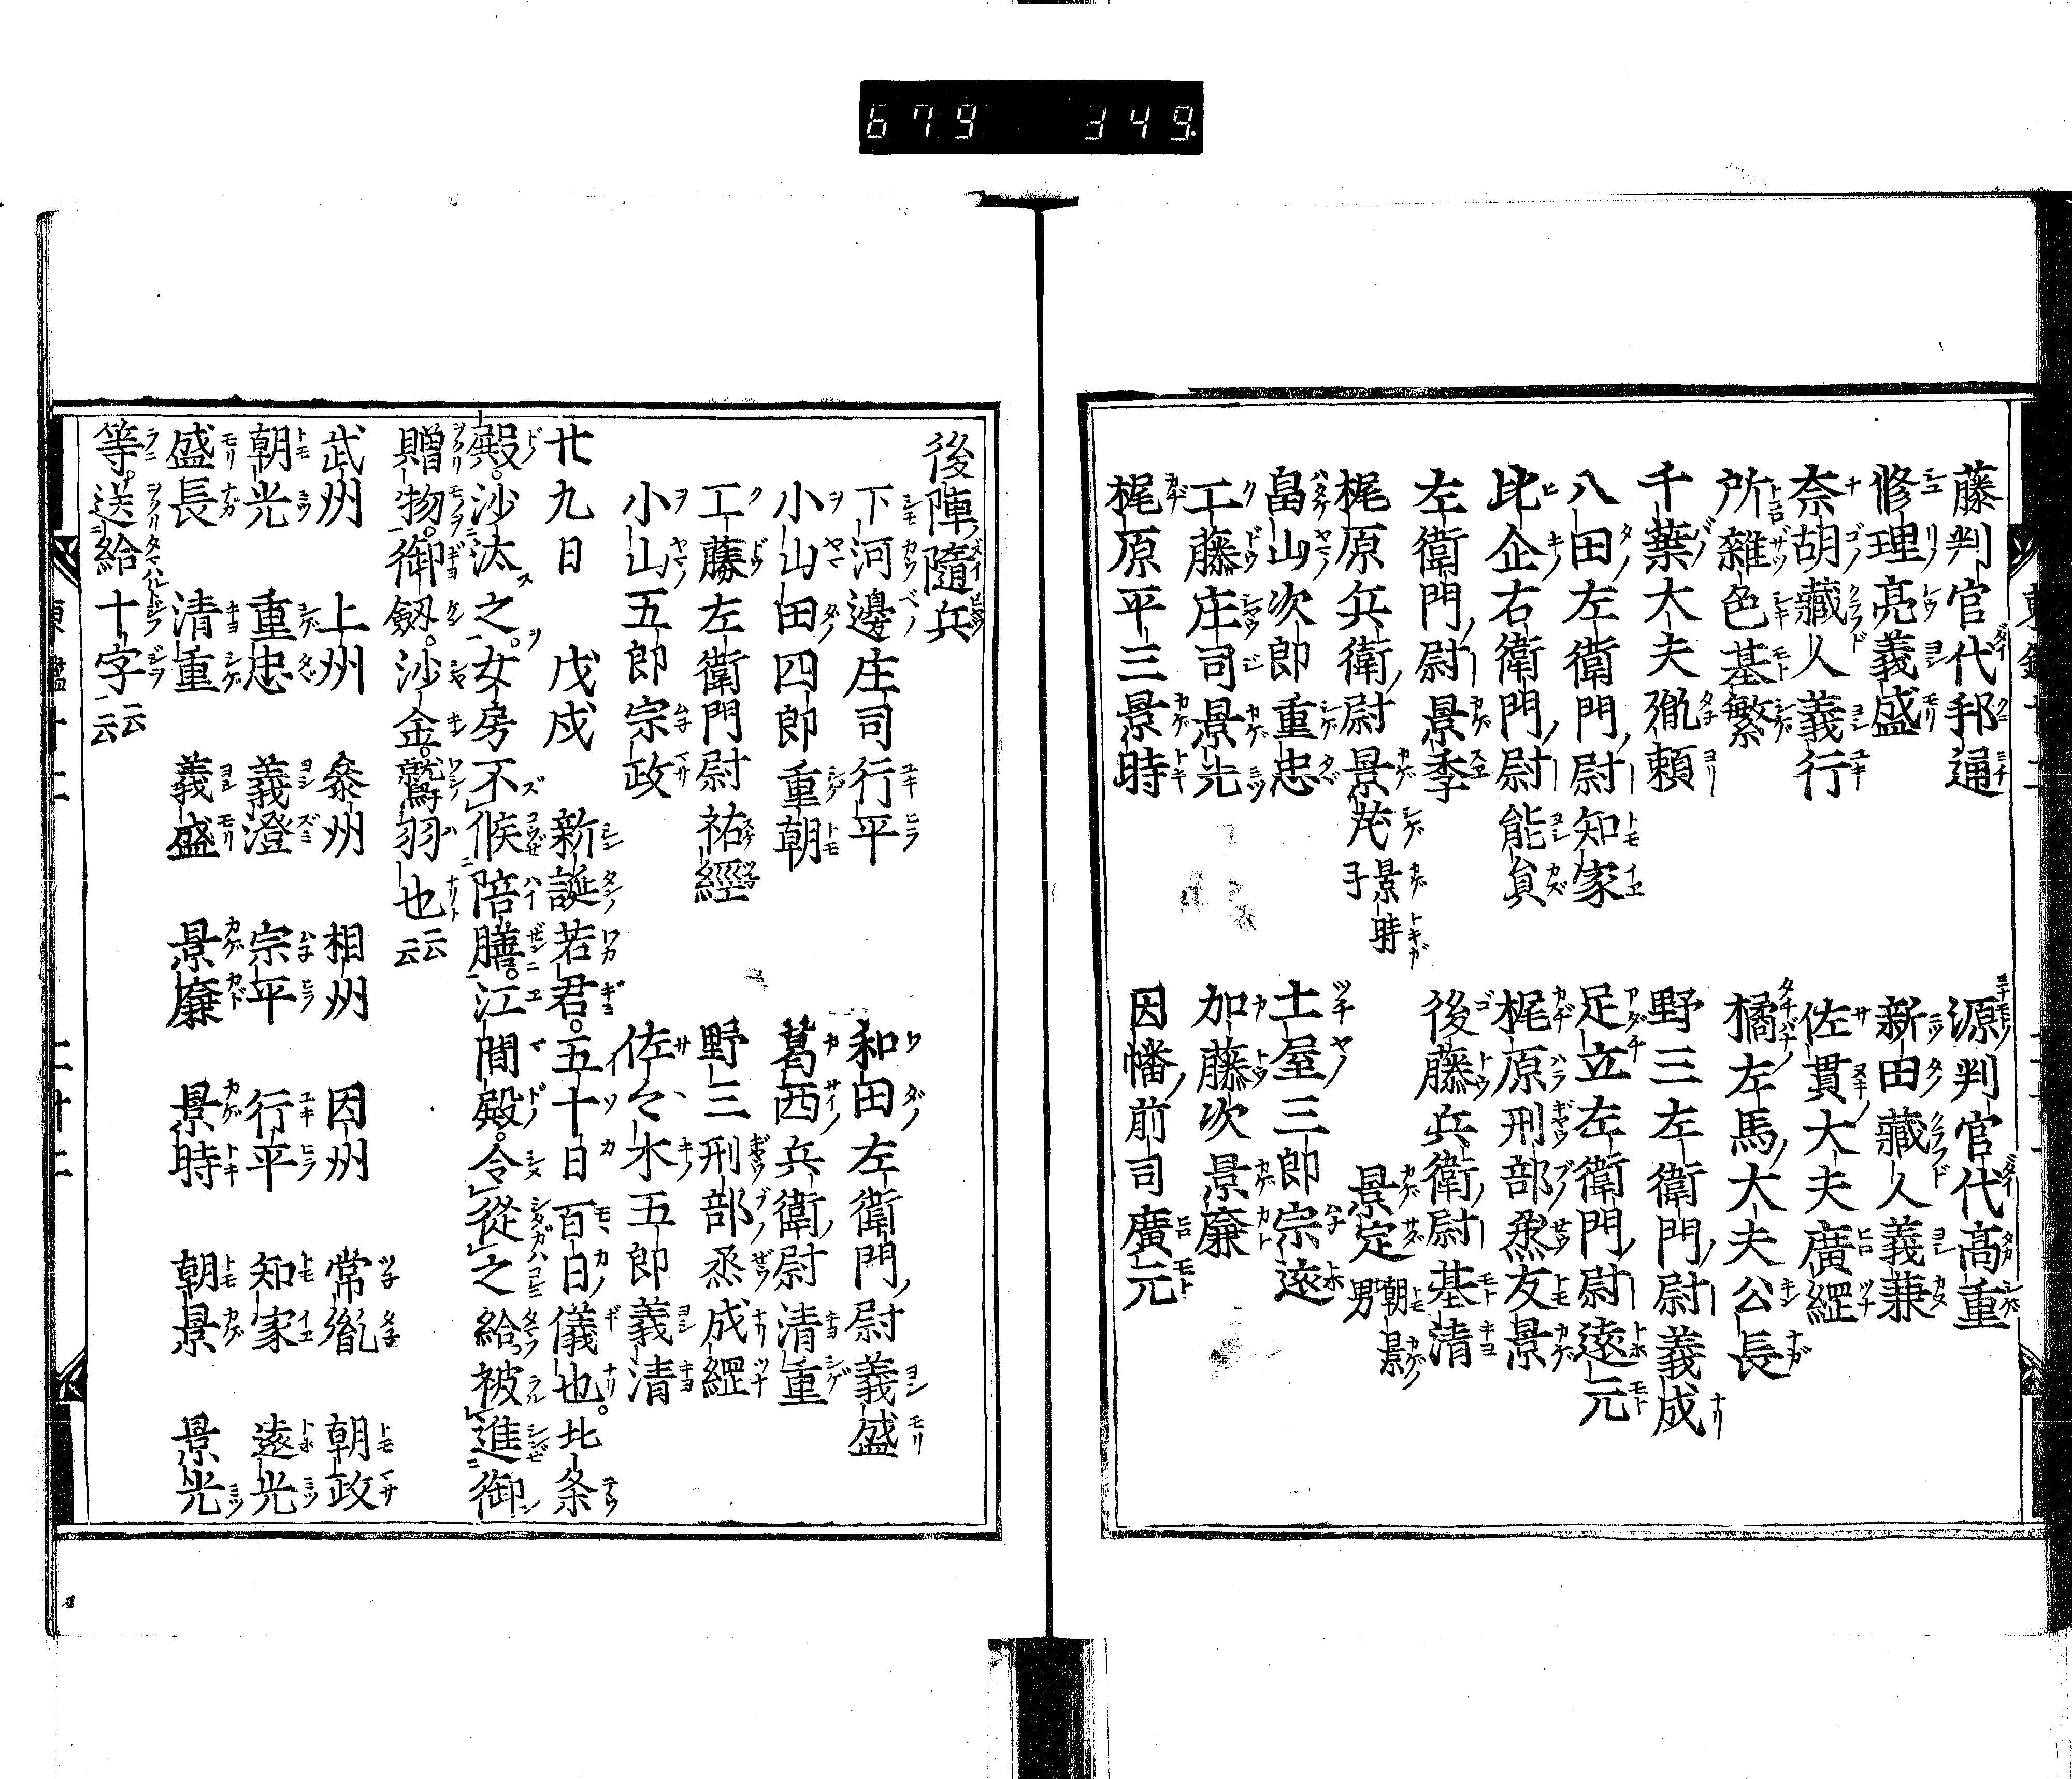 679 349
藤判官代邦通 源判官代高重
修理亮義盛 新田藏人義兼
奈胡藏人義行 佐貫大夫廣綱
所雜色基繁 橘左馬大夫公長
千葉大夫胤頼 野三左衛門尉義成
八田左衛門尉知家 足立左衛門尉遠元
比企右衛門尉能員 梶原刑部烝友景
左衛門尉景季 後藤兵衛尉基清
梶原兵衛尉景茂景時子 景定朝景男
畠山次郎重忠 土屋三郎宗遠
工藤庄司景光 加藤次景廉
梶原平三景時 因幡前司廣元
後陣隨兵
下河邊庄司行平 和田左衛門尉義盛
小山田四郎重朝 葛西兵衛尉清重
工藤左衛門尉祐經 野三刑部烝成綱
小山五郎宗政 佐々木五郎義清
廿九日 戊戌 新誕若君。五十日百日儀也。北条
殿。沙汰之。女房不候陪膳。江間殿。令從之給被進御
贈物。御劔。沙金。鷲羽也云云
武州 上州 參州 相州 因州 常胤 朝政
朝光 重忠 義澄 宗平 行平 知家 遠光
盛長 清重 義盛 景廉 景時 朝景 景光
等。送給十字云云